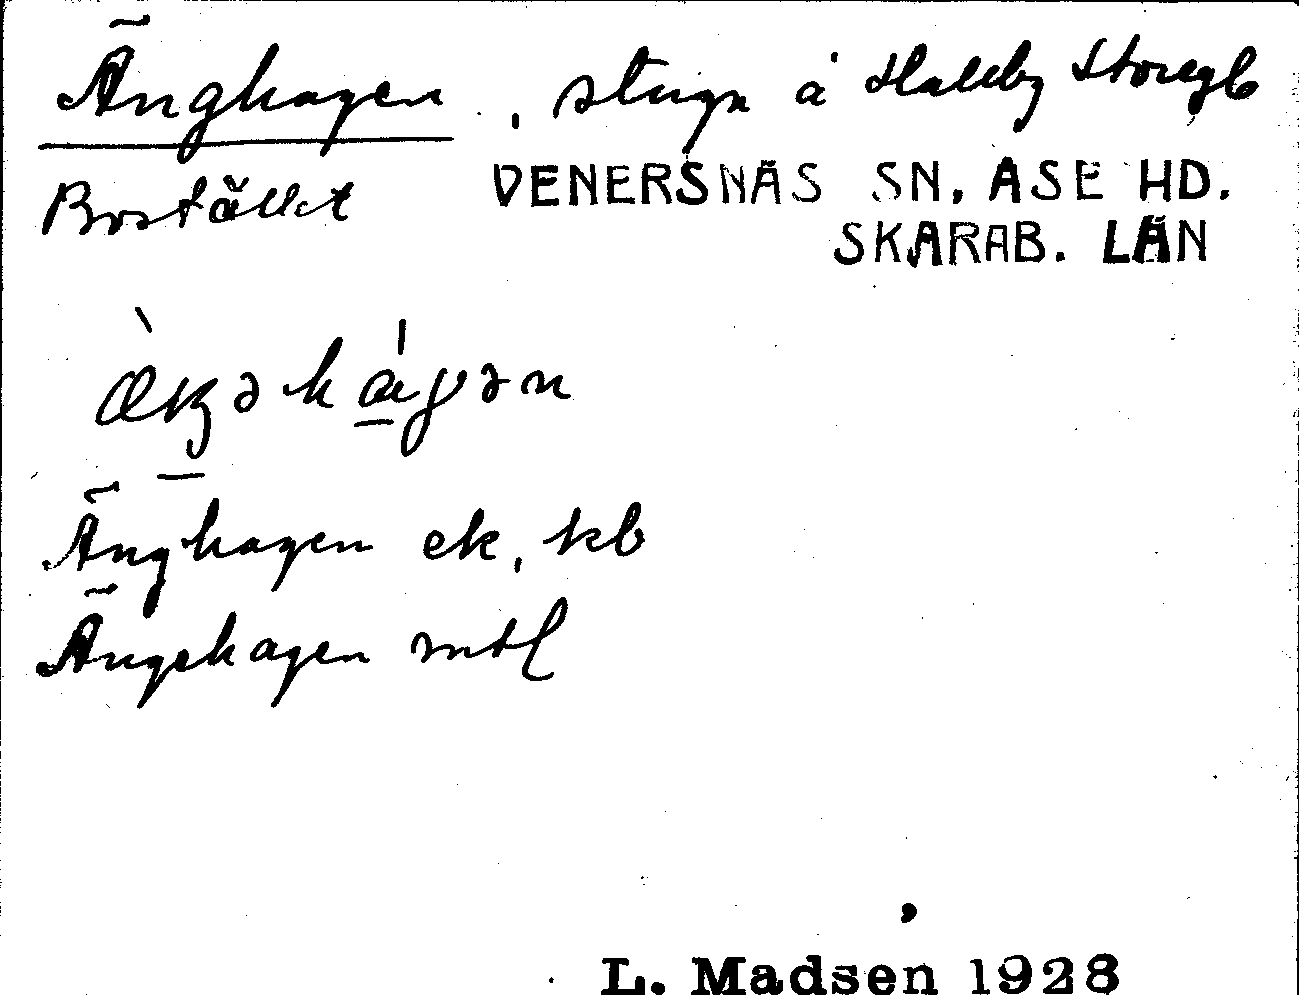 Änghagen, stuga å Halleby Storegb
Bostället VENERSNÄS SN, ASE HD.
SKARAB. LÄN
Änghagen ek, kb
Ängehagen mtl
L. Madsen 1928